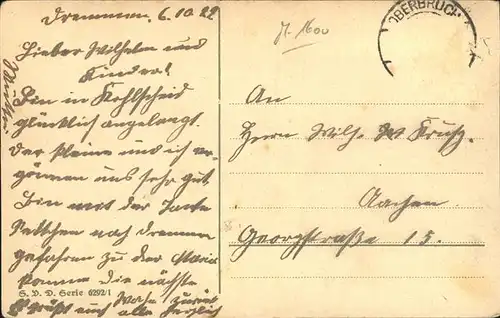 Dremmen, 6.10.22
Lieber Wilhelm und
Kinder!
Bin in Kohlscheid
glücklich angelangt.
Der Kleine und ich ver-
gönnen uns sehr gut.
Bin mit der Tante
Settchen nach Dremmen
gefahren zu der Maria
komme die nächste
Woche zurück
Es grüßt euch alle herzlich
Mutter
S. D. D. Serie 6292/1
OBERBRUCH
An
Herrn Wilh.
Aachen.
Georgstraße 15.